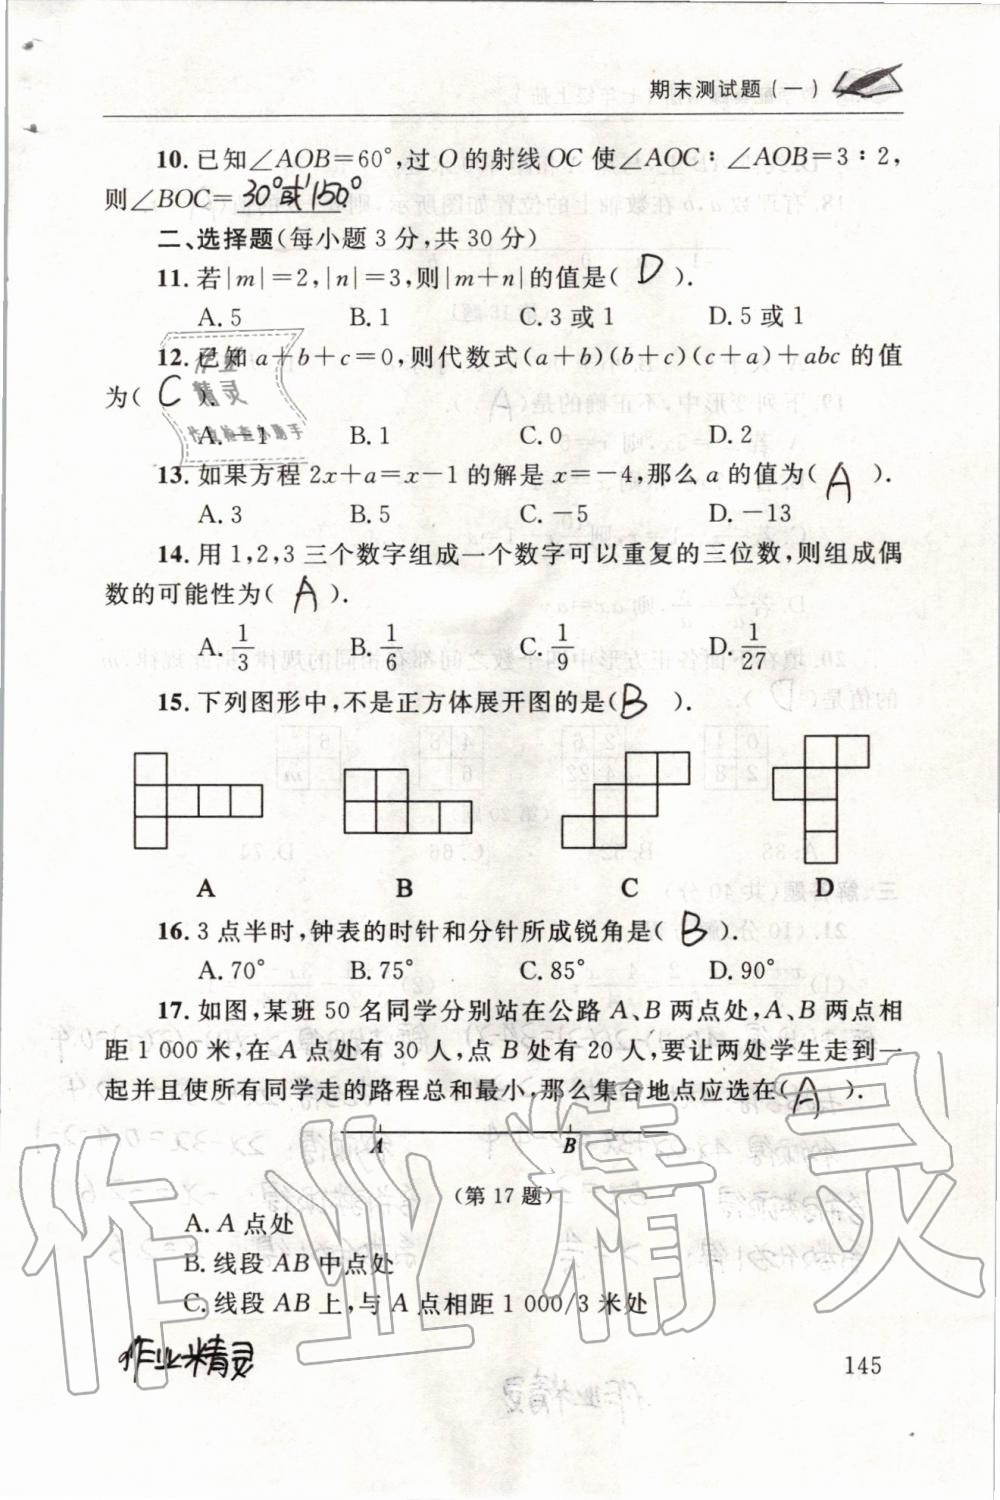 期末测试题(一)
10.已知∠AOB=60°,过O的射线OC使∠AOC∶∠AOB=3∶2,
则∠BOC= 30°或150°
二、选择题(每小题3分,共30分)
11.若|m|=2,|n|=3,则|m+n|的值是( D ).
A.5 B.1 C.3或1 D.5或1
12.已知a+b+c=0,则代数式(a+b)(b+c)(c+a)+abc的值
为( C ).
A.-1 B.1 C.0 D.2
13.如果方程2x+a=x-1的解是x=-4,那么a的值为( A ).
A.3 B.5 C.-5 D.-13
14.用1,2,3三个数字组成一个数字可以重复的三位数,则组成偶
数的可能性为( A ).
A.1/3 B.1/6 C.1/9 D.1/27
15.下列图形中,不是正方体展开图的是( B ).
A B C D
16.3点半时,钟表的时针和分针所成锐角是( B ).
A.70° B.75° C.85° D.90°
17.如图,某班50名同学分别站在公路A、B两点处,A、B两点相
距1 000米,在A点处有30人,点B处有20人,要让两处学生走到一
起并且使所有同学走的路程总和最小,那么集合地点应选在( A ).
A B
(第17题)
A.A点处
B.线段AB中点处
C.线段AB上,与A点相距1 000/3米处
作业精灵
145
作业精灵
作业
精灵
作业检查小助手